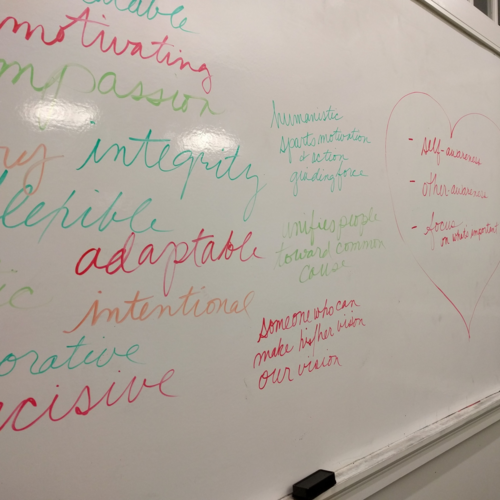 motivating
mpassion
integrity
flexible
adaptable
ic intentional
orative
ecisive
humanistic
sparts motivation
& action
guiding force
unifies people
toward common
cause
someone who can
make his/her vision
our vision
- self-awareness
- other-awareness
- focus
on what's important